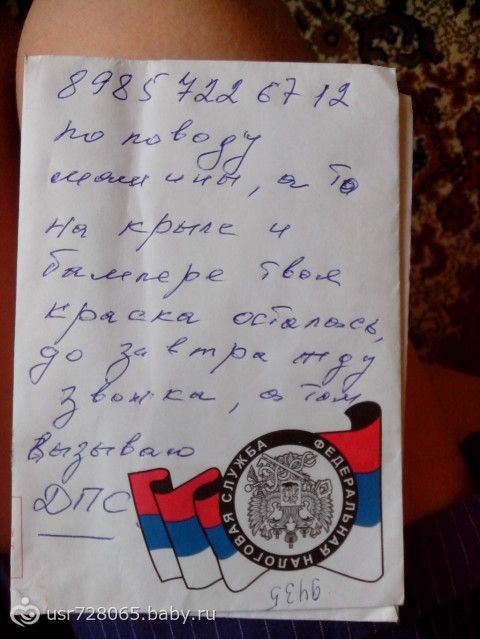 8985 722 67 12
по поводу
машины, а то
на крыле и
бампере твоя
краска осталась,
до завтра жду
звонка, а там
вызываю
ДПС
ФЕДЕРАЛЬНАЯ НАЛОГОВАЯ СЛУЖБА
9435
usr728065.baby.ru